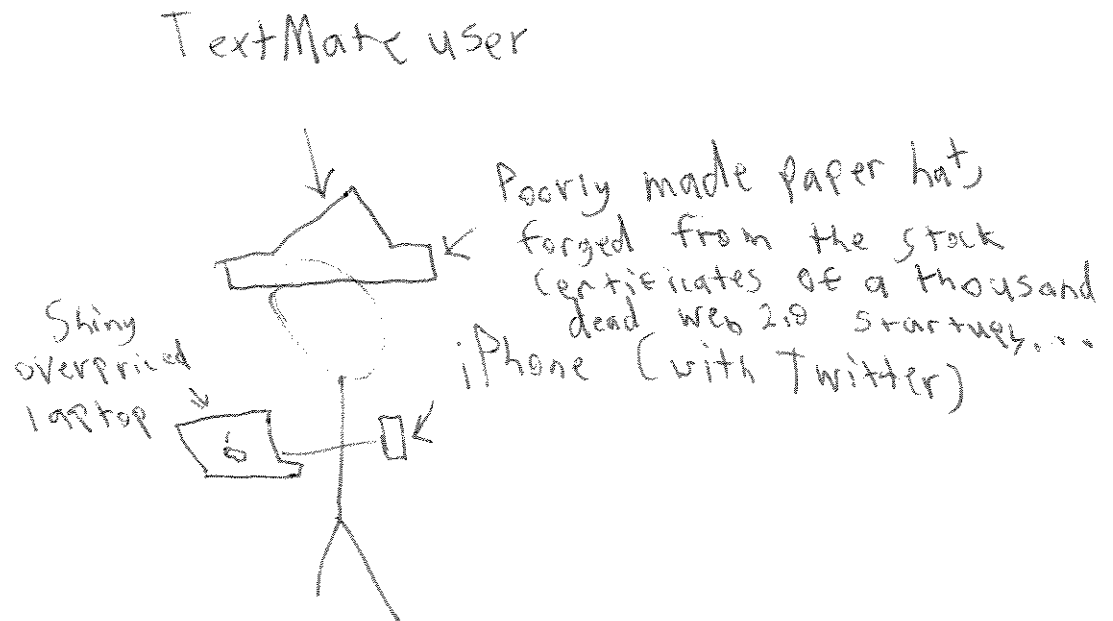 TextMate user
Poorly made paper hat,
forged from the stock
certificates of a thousand
dead web 2.0 startups...
Shiny
overpriced
laptop
iPhone (with Twitter)